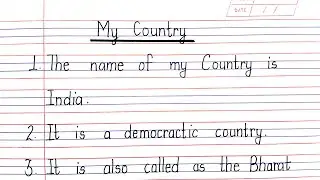 DATE
My Country
1. The name of my Country is
India.
2. It is a democractic country.
3. It is also called as the Bharat